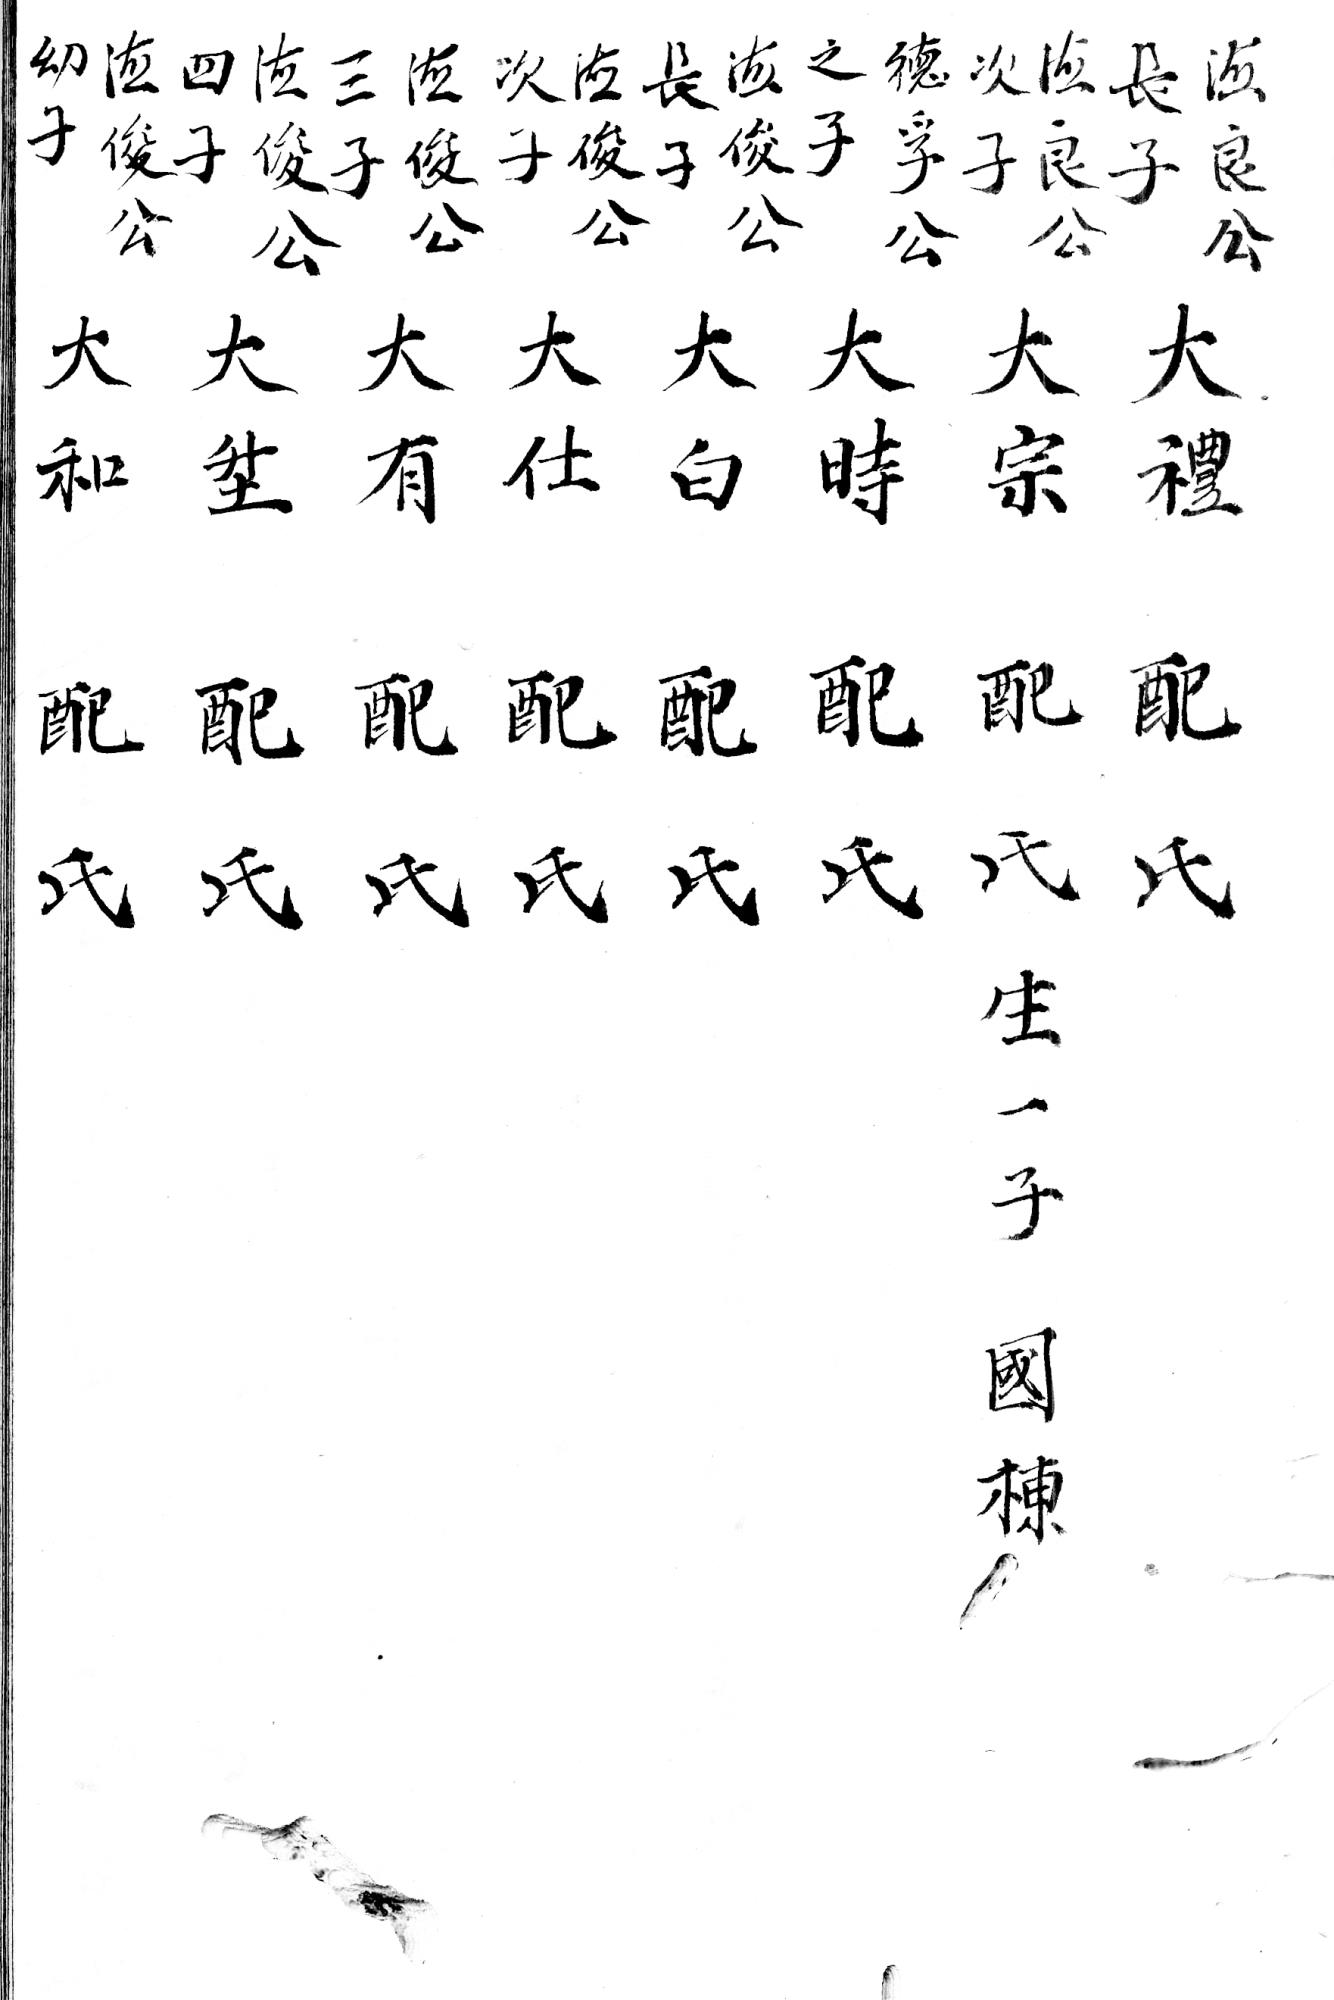 德良公
長子
大禮 配 氏
德良公
次子
大宗 配 氏 生一子 國棟
德孚公
之子
大時 配 氏
德俊公
長子
大白 配 氏
德俊公
次子
大仕 配 氏
德俊公
三子
大有 配 氏
德俊公
四子
大 配 氏
德俊公
幼子
大和 配 氏